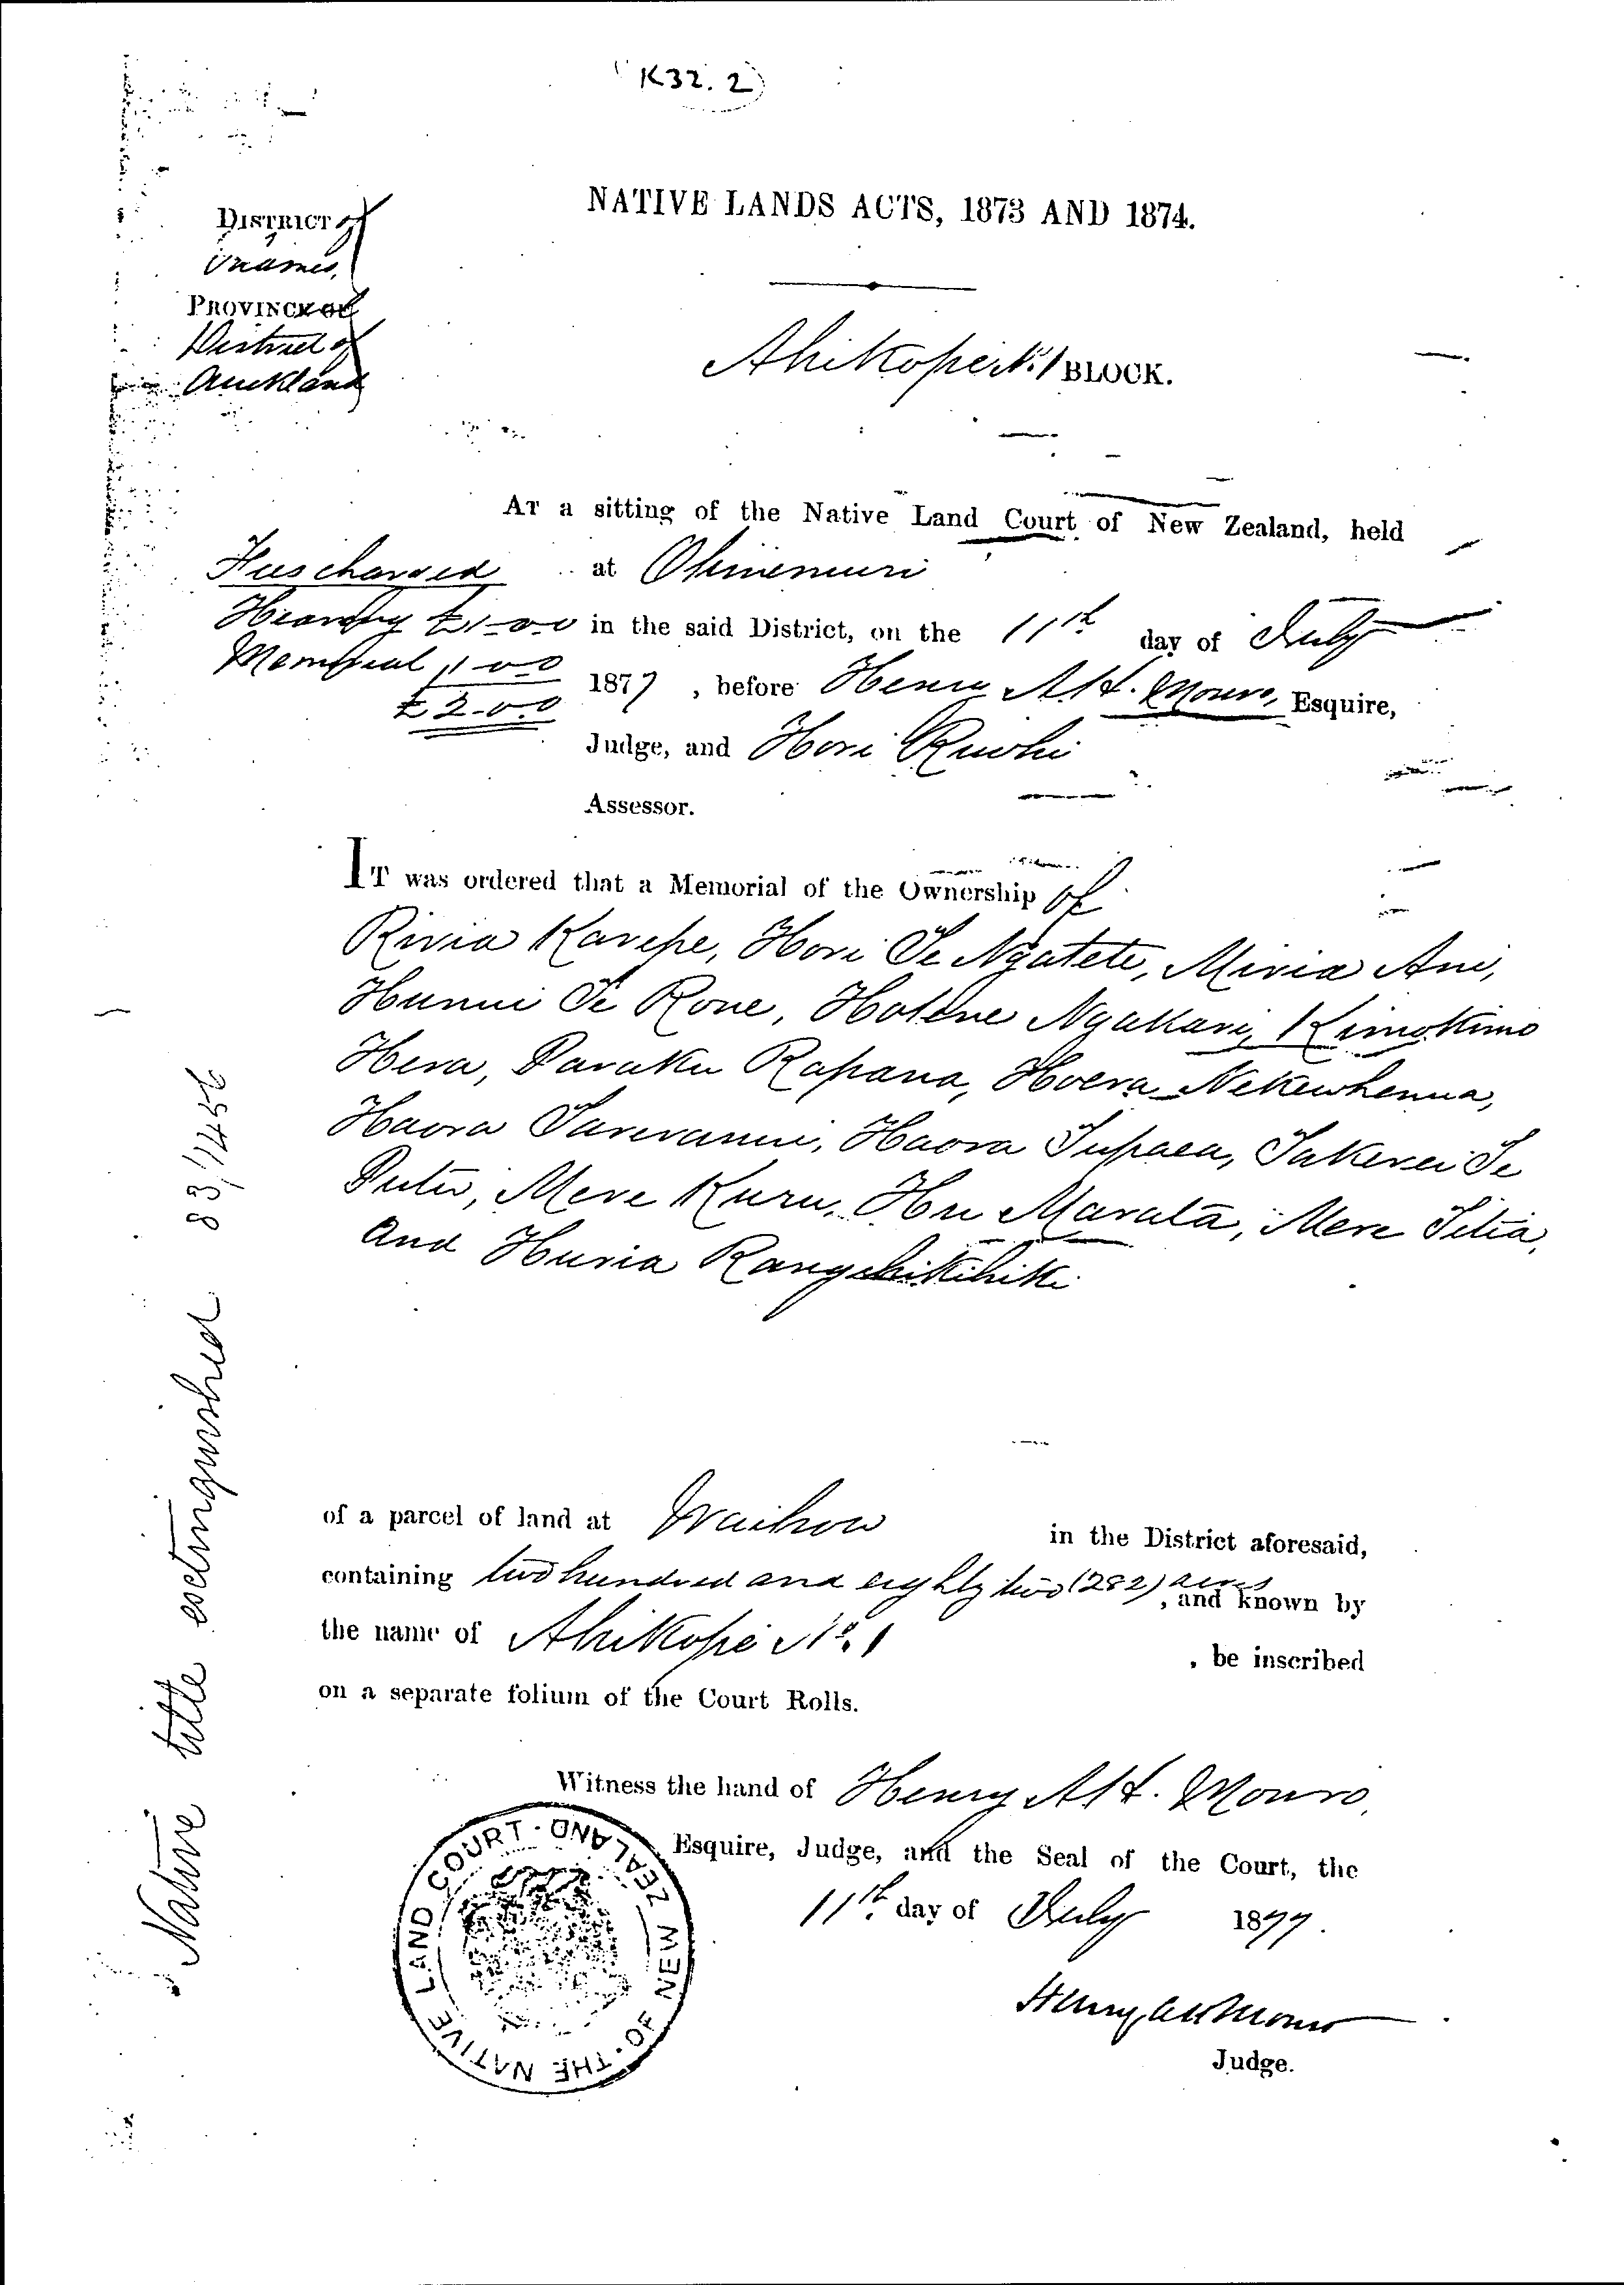 K32.2
NATIVE LANDS ACTS, 1873 AND 1874.
DISTRICT of
Thames,
PROVINCE OF
District of
Auckland
Ahikope No. 1 BLOCK.
AT a sitting of the Native Land Court of New Zealand, held
Fees charged
at Ohinemuri
Hearing £1-0-0
in the said District, on the 11th day of July
Memorial 1-0-0
1877, before Henry A. H. Monro, Esquire,
£2-0-0
Judge, and Hori Riwhi
Assessor.
IT was ordered that a Memorial of the Ownership of
Riria Karepe, Hori Te Ngatete, Miria Ani,
Te Rone, Hotene Ngakari, Kimokimo
Hera, Paraku Rapana, Hoera Nekewhenua,
Haora Tareranui, Haora Tupaea, Takerei Te
Putu, Mere Kuru, Hu Marata, Mere Titia,
and Huria Rangihikihiki
of a parcel of land at Waihou in the District aforesaid,
containing two hundred and eighty two (282) acres, and known by
the name of Ahikope No. 1, be inscribed
on a separate folium of the Court Rolls.
Witness the hand of Henry A. H. Monro,
Esquire, Judge, and the Seal of the Court, the
11th day of July 1877.
Henry A H Monro
Judge.
THE NATIVE LAND COURT · OF NEW ZEALAND ·
Native title extinguished 83/1456